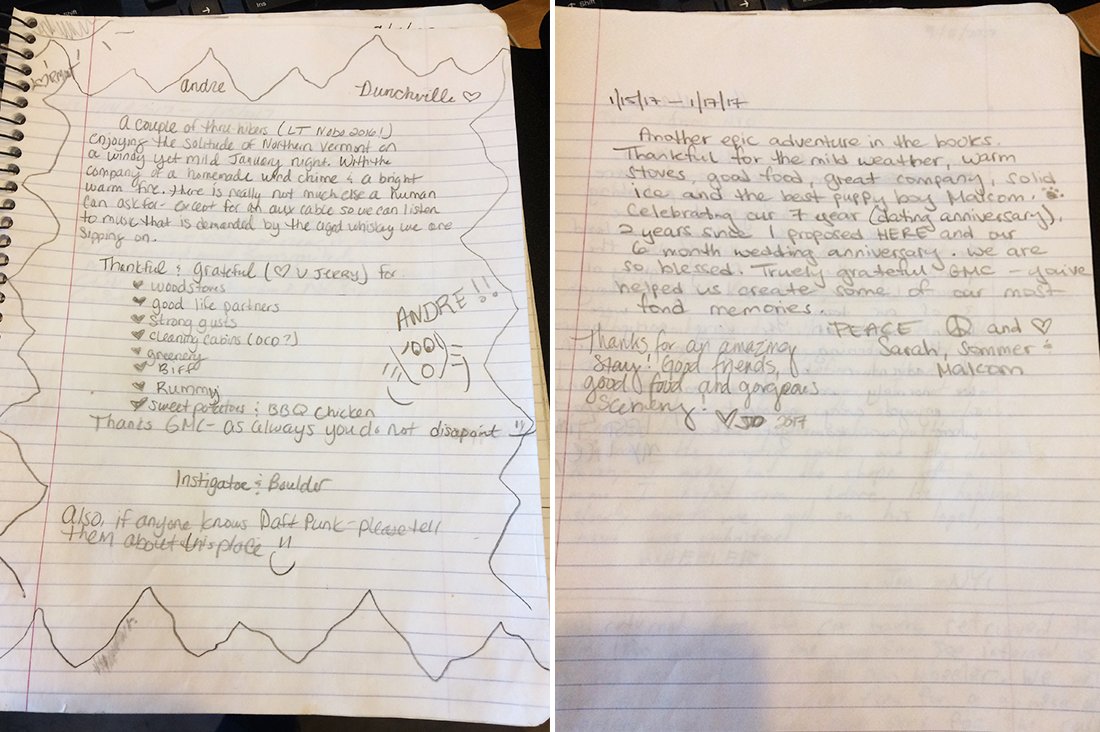 andre
Dunchville ♡
A couple of thru-hikers (LT Nobo 2016!)
enjoying the solitude of Northern Vermont on
a windy yet mild January night. With the
company of a homemade wind chime & a bright
warm fire. there is really not much else a human
can ask for- except for an aux cable so we can listen
to music that is demanded by the aged whisky we are
sipping on.
Thankful & grateful (♡ U JERRY) for:
♥ woodstoves
♥ good life partners
♥ Strong gusts
♥ cleaning cabins (OCD?)
♥ greenery
♥ Biff
♥ Rummy
♥ sweet potatoes & BBQ Chicken
ANDRE!!
Thanks GMC- as always you do not disapoint
Instigator & Boulder
Also, if anyone knows Daft Punk- please tell
them about this place
1/15/17 - 1/17/17
Another epic adventure in the books.
Thankful for the mild weather, warm
stoves, good food, great company, solid
ice and the best puppy boy Malcom.
Celebrating our 7 year (dating anniversary),
2 years since I proposed HERE and our
6 month wedding anniversary. we are
so blessed. Truely grateful GMC - you've
helped us create some of our most
fond memories.
PEACE ☮ and ♡
Sarah, Sommer &
Malcom
Thanks for an amazing
Stay! Good friends,
good food and gorgeous
Scenery!
♡JD 2017